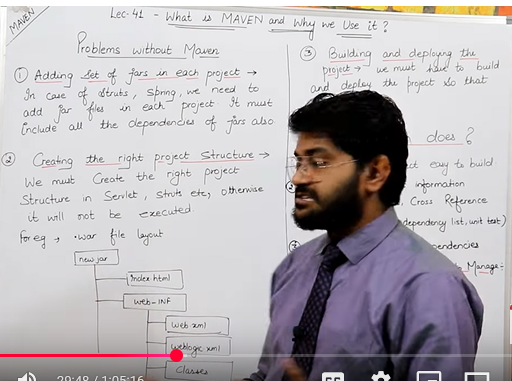 MAVEN
Lec-41 - What is MAVEN and Why we Use it?
Problems without Maven
① Adding set of jars in each project →
In case of struts, Spring, we need to
add jar files in each project. It must
include all the dependencies of jars also
② Creating the right project structure →
We must Create the right project
Structure in Servlet, struts etc, otherwise
it will not be executed
for eg → .war file layout
new jar
index.html
WEB-INF
web.xml
weblogic.xml
Classes
③ Building and deploying the
project → we must have to build
and deploy the project so that
does?
ct easy to build
information
Cross Reference
dependency list, unit test)
dependencies
Manage-
29:48 / 1:05:16
CC